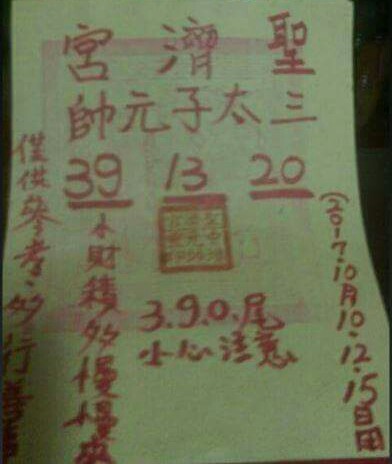 聖濟宮
三太子元帥
20 13 39
(2017.10月10.12.15日用
3.9.0.尾
小心注意
小財積多慢慢來
僅供參考.多行善